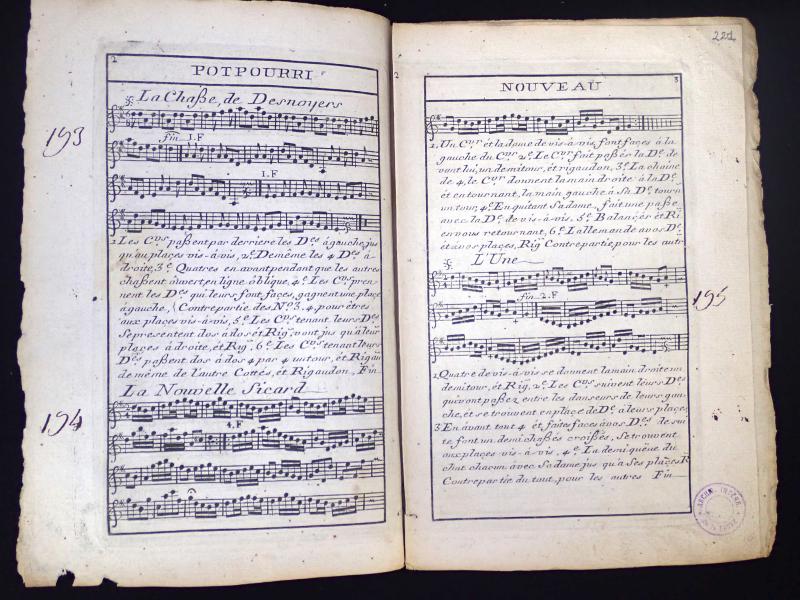 2
POTPOURRI
La Chaße, de Desnoyers
fin 1.F
1.F
1 Les Cvrs paßent par derriere les Des àgauche, jus
qu'au places vis-à-vis, 2e. Deméme les 4 Des à
droite, 3e. Quatres en avant pendant que les autres
chaßent ouvert, en ligne oblique, 4e. Les Cvrs pren-
nent les Des qui leurs, font, faces, gagnent une place
àgauche, Contrepartie des No 3. 4. pour étres
aux places vis-à-vis, 5e. Les Cvrs tenant leurs Des
Se présentent dos à dos ét Rig. vont jus qu'à leur
places à droite, ét Rig. 6e. Les Cvrs tenant leurs
Des paßent dos à dos 4 par 4 un tour, ét Rigau
de méme de l'autre Cottés, ét Rigaudon, Fin
La Nouvelle Sicard
4.F
193
194
2
NOUVEAU
3
221
1. Un Cvr ét la dame de vis-à-vis, font faces à la
gauche du Cvr 2e. Le Cvr fait paßés la De. de
vont lui, un demi tour, ét rigaudon, 3e. La chaine
de 4, le Cvr donnent la main droite à la De
ét en tournant, la main gauche à Sa De. tourn
un tour, 4e. En quitant Sa dame, fait une paße
avec la De. de vis-à-vis, 5e. Balançés ét Ri
en vous retournant, 6e. L'allemande a vos De
ét à vos places, Rig. Contrepartie pour les autr
L'Une
fin 2.F
195
1. Quatre de vis-à-vis se donnent la main droite un
demi tour, ét Rig. 2e. Les Cvrs suivent leurs Des
qui vont paßez entre les danseurs de leurs gau-
che, ét se trouvent en place de De. à leurs places
3. En avant tout 4 ét, faites faces à vos Des de sui
te font un demi chaßés croißés, Se trouvent
aux places vis-à-vis, 4e. La demi queüe du
chat chacun avec Sa dame, jus qu'à Ses places R
Contrepartie du tout, pour les autres Fin